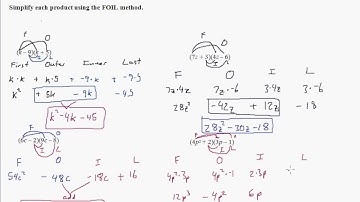 Simplify each product using the FOIL method.
F O
(k − 9)(k + 5)
I L
First Outer Inner Last
k·k + k·5 + -9·k + -9·5
k² + 5k - 9k - 45
k² - 4k - 45
F O
(7z + 3)(4z − 6)
I L
F O I L
7z·4z 7z·-6 3·4z 3·-6
28z² -42z + 12z - 18
28z² - 30z - 18
F O
(6c − 2)(9c − 8)
I L
F O I L
54c² - 48c - 18c + 16
add
F O
(4p² + 2)(3p − 1)
I L
F O I L
4p²·3p 4p²·-1 2·3p
12p³ - 4p² 6p